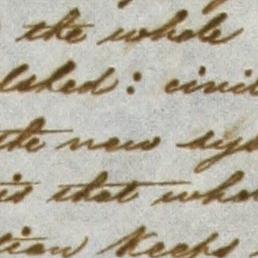 the whole
lshed: civil
the new sys
is that whe
tion keeps